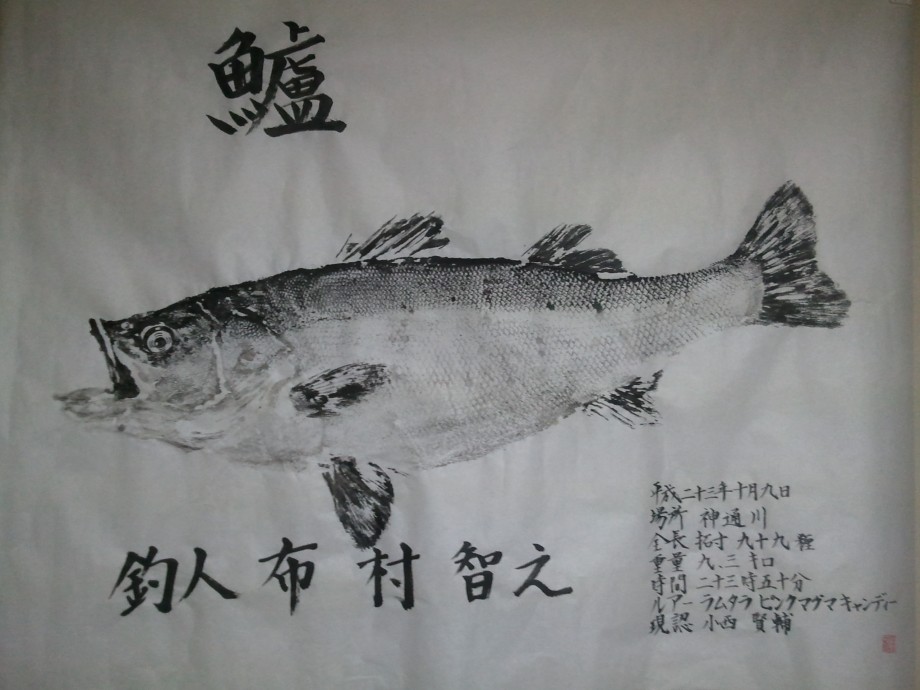 鱸
釣人 布村 智之
平成二十三年十月九日
場所 神通川
全長 拓寸 九十九糎
重量 九.三キロ
時間 二十三時五十分
ルアー ラムタラ ピンクマグマキャンディー
現認 小西 賢輔